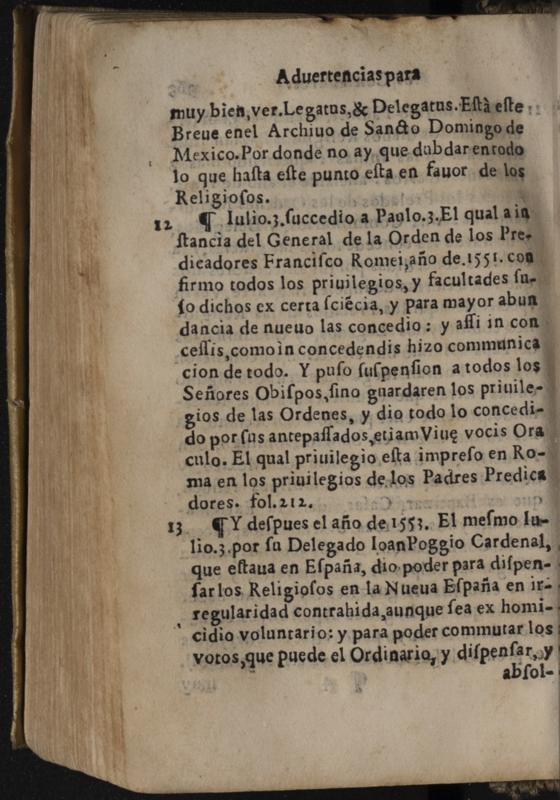 Aduertencias para
muy bien, ver. Legatus, & Delegatus. Està este
Breue enel Archiuo de Sancto Domingo de
Mexico. Por donde no ay que dubdar en todo
lo que hasta este punto esta en fauor de los
Religiosos.
12 ¶ Iulio.3. succedio a Paulo.3. El qual a in
stancia del General de la Orden de los Pre-
dicadores Francisco Romei, año de.1551. con
firmo todos los priuilegios, y facultades su-
so dichos ex certa sciẽcia, y para mayor abun
dancia de nueuo las concedio: y assi in con
cessis, como in concedendis hizo communica
cion de todo. Y puso suspension a todos los
Señores Obispos, sino guardaren los priuile-
gios de las Ordenes, y dio todo lo concedi-
do por sus antepassados, etiam Viuę vocis Ora
culo. El qual priuilegio esta impreso en Ro-
ma en los priuilegios de los Padres Predica
dores. fol.212.
13 ¶ Y despues el año de 1553. El mesmo Iu-
lio.3. por su Delegado Ioan Poggio Cardenal,
que estaua en España, dio poder para dispen-
sar los Religiosos en la Nueua España en ir-
regularidad contrahida, aunque sea ex homi-
cidio voluntario: y para poder commutar los
votos, que puede el Ordinario, y dispensar, y
absol-